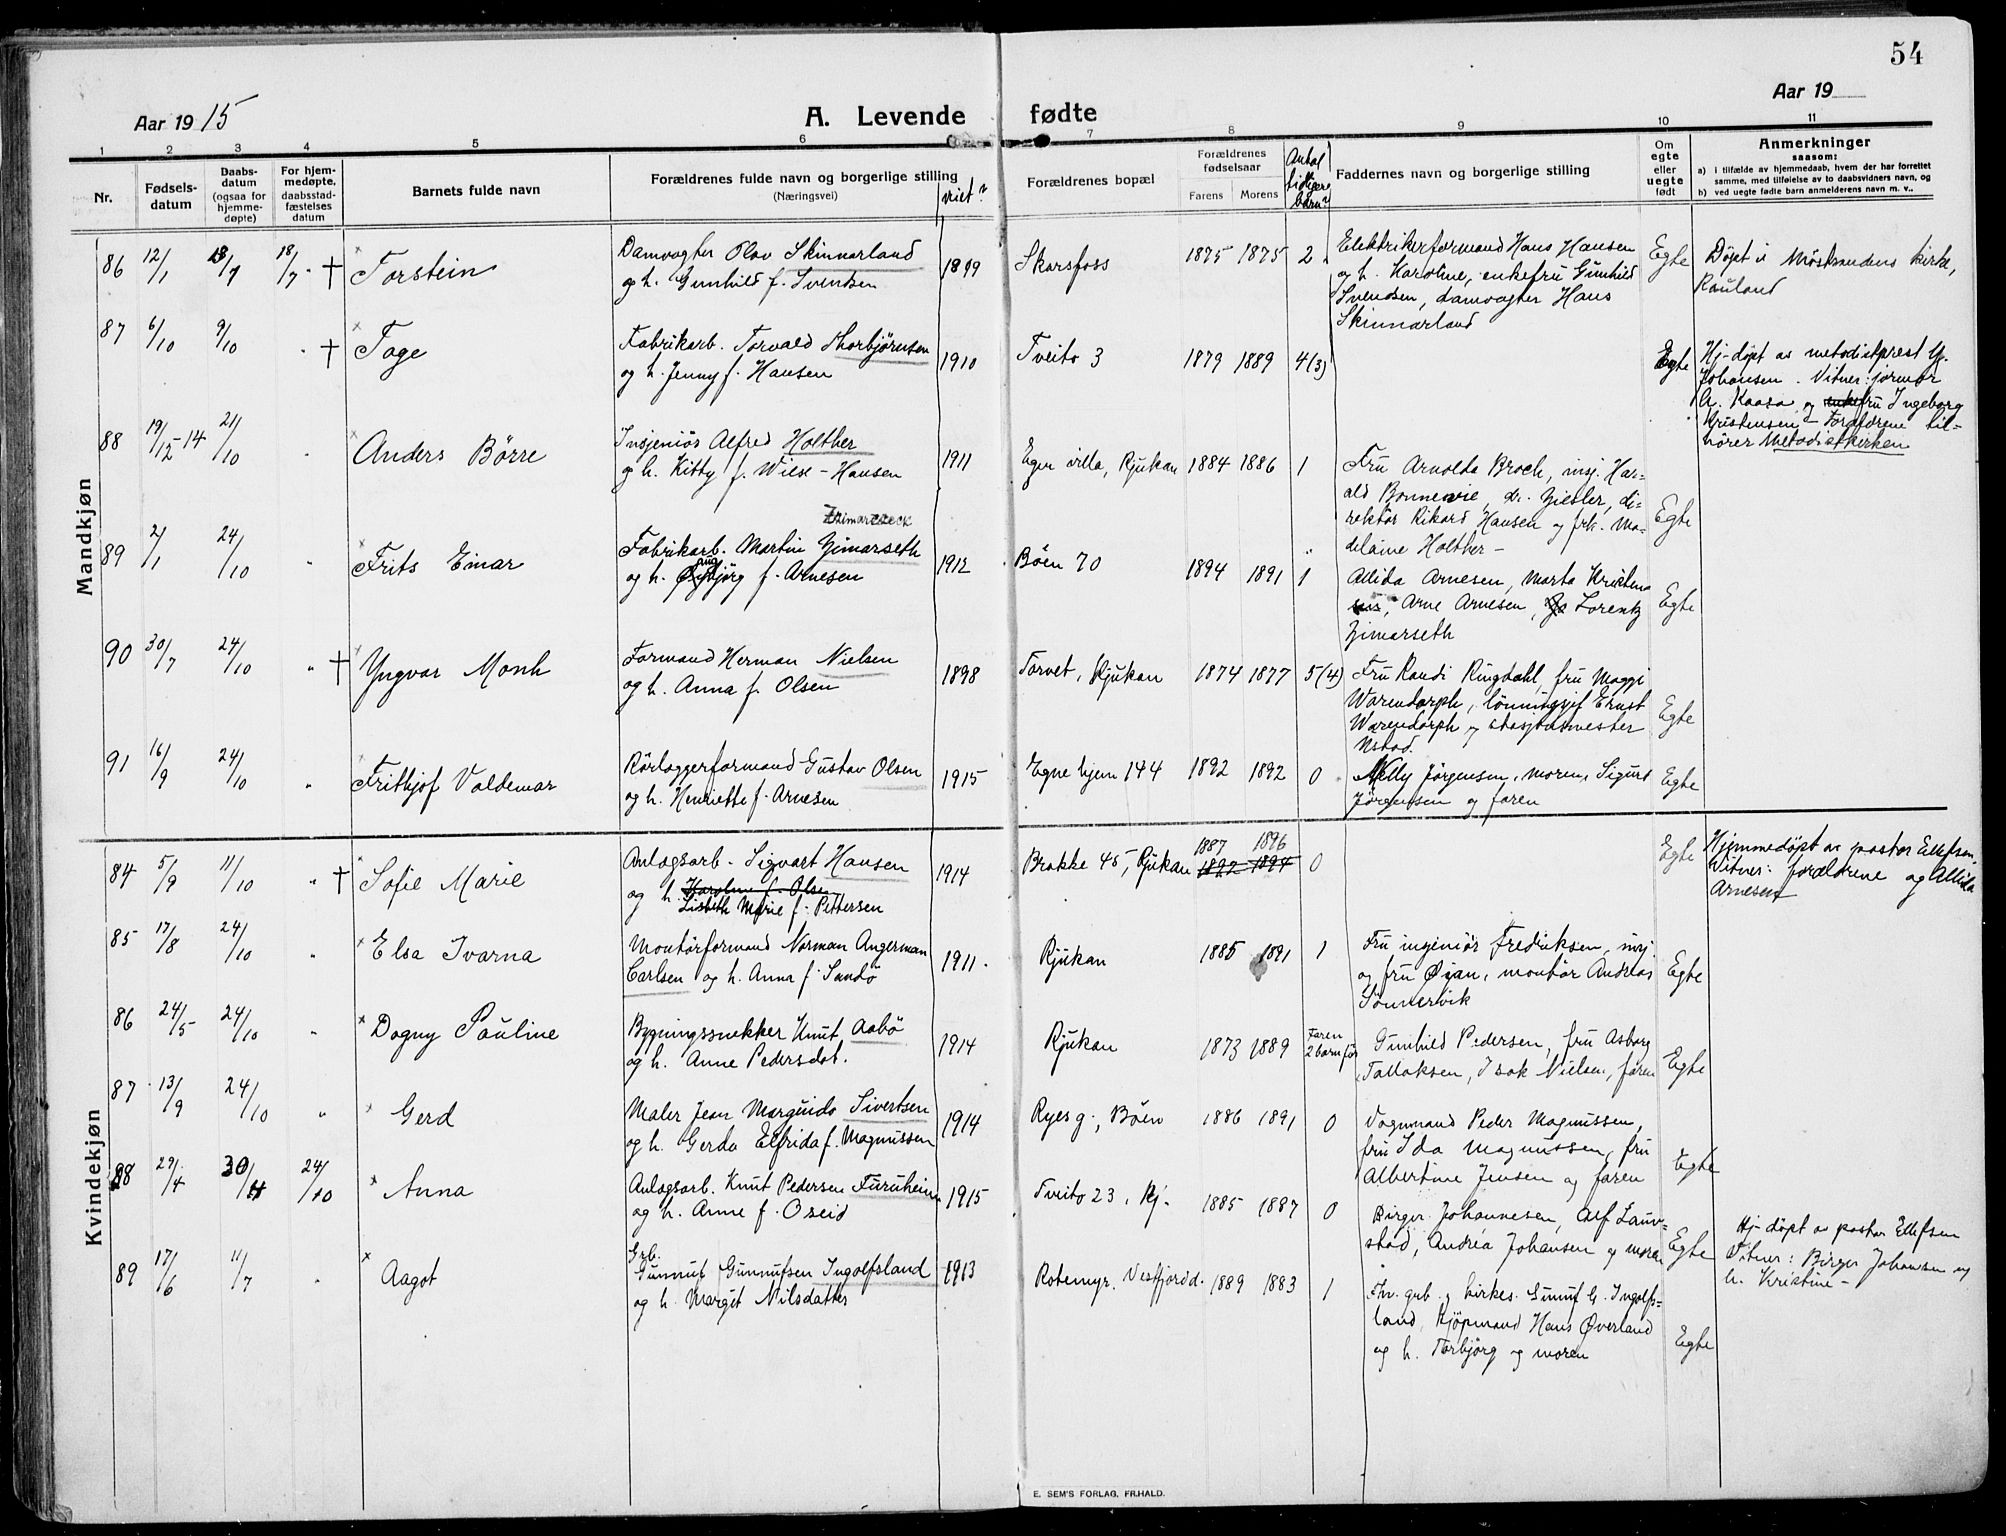 54
Aar 1915
A. Levende fødte
Aar 19
1 2 3 4 5 6 7 8 9 10 11
Nr.
Fødsels-
datum
Daabs-
datum
(ogsaa for
hjemme-
døpte)
For hjem-
medøpte,
daabsstad-
fæstelses
datum
Barnets fulde navn
Forældrenes fulde navn og borgerlige stilling
(Næringsvei)
viet?
Forældrenes bopæl
Forældrenes
fødselsaar
Farens Morens
Antal
tidligere
barn?
Faddernes navn og borgerlige stilling
Om
egte
eller
uegte
født
Anmerkninger
saasom:
a) i tilfælde av hjemmedaab, hvem der har forrettet
samme, med tilføielse av to daabsvidners navn, og
b) ved uegte fødte barn anmelderens navn m. v..
Mandkjøn
86 12/1 13/7 18/7 † Torstein
Damvogter Olav Skinnarland
og h. Gunhild f. Svendsen
1899 Skarsfoss 1875 1875 2
Elektrikerformand Hans Hansen
og h. Karoline, enkefru Gunhild
Svendsen, damvogter Hans
Skinnarland
Egte
Døpt i Møstrandens kirke,
Rauland
87 6/10 9/10 † Tage
Fabrikarb. Torvald Thorbjørnsen
og h. Jenny f. Hansen
1910 Tveito 3 1879 1889 4(3)
Egte
Hj-døpt av metodistprest
Johansen. Vitner: jormor
A. Kaasa og enkefru Ingeborg
Kristensen - Forældrene til-
hører Metodistkirken
88 19/12-14 21/10 Anders Börre
Insjeniör Alfred Holther
og h. Kitty f. Wiese-Hansen
1911 Eger villa, Rjukan 1884 1886 1
Fru Arnolda Broch, insj. Har-
ald Bonnevie, dr. Ziesler, di-
rektør Rikard Hansen og frk. Ma-
delaine Holther -
Egte
89 2/1 24/10 Frits Einar
Zimarseck
Fabrikarb. Martin Zimarseth
og h. Øybjörg f. Arnesen
1912 Böen 70 1894 1891 1
Allida Arnesen, Marta Kristen
sen, Arne Arnesen, Lorentz
Zimarseth
Egte
90 30/7 24/10 † Yngvar Monh
Formand Herman Nielsen
og h. Anna f. Olsen
1898 Torvet, Rjukan 1874 1877 5(4)
Fru Randi Ringdahl, fru Maggi
Warendorph, lönningssjef Ernst
Warendorph og stasjonsmester
Ustad.
Egte
91 16/9 24/10 Frithjof Valdemar
Rörlæggerformand Gustav Olsen
og h. Henriette f. Arnesen
1915 Egne hjem 144 1892 1892 0
Nelly Jörgensen, moren, Sigurd
Jörgensen og faren
Egte
Kvindekjøn
84 5/9 11/10 † Sofie Marie
Anlægsarb. Sigvart Hansen
og h. Karoline f. Olsen
Lisbeth Marie f. Pettersen
1914 Brakke 45, Rjukan 1887 1896
1892 1894 0
Egte
Hjemmedøpt av pastor Ellefsen,
Vitner: forældrene og Allida
Arnesen
85 17/8 24/10 Elsa Ivarna
Montörformand Norman Angerman
Carlsen og h. Anna f. Sandö
1911 Rjukan 1885 1891 1
Fru ingeniör Fredriksen, insj.
og fru Øian, montör Andreas
Sönnervik
Egte
86 24/5 24/10 Dagny Pauline
Bygningssnekker Knut Aabö
og h. Anne Pedersdot.
1914 Rjukan 1873 1889 Faren
2 barn för
Gunhild Pedersen, fru Asborg
Tallaksen, Isak Nielsen, faren
Egte
87 13/9 24/10 Gerd
Maler Jean Marguido Sivertsen
og h. Gerda Elfrida f. Magnussen
1914 Ryes g., Böen 1886 1891 0
Vognmand Peder Magnussen,
fru Ida Magnussen, fru
Albertine Jensen og faren
Egte
88 29/4 30/4 24/10 Anna
Anlægsarb. Knut Pedersen Furuheim
og h. Anne f. Oseid
1915 Tveito 23, Rj. 1885 1887 0
Birger Johannesen, Alf Lauv-
stad, Andrea Johansen og moren
Egte
Hj-döpt av pastor Ellefsen
Vitner: Birger Johansen og
h. Kristine -
89 17/6 11/7 Aagot
Grb.
Gunnuf Gunnufsen Ingolfsland
og h. Margit Nilsdatter
1913 Rotemyr, Vestfjordd. 1889 1883 1
Fhv. grb. og kirkes. Gunuf G. Ingolfs-
land, Kjöpmand Hans Øverland
og h. Torbjörg og moren
Egte
E. SEM'S FORLAG, FR.HALD.